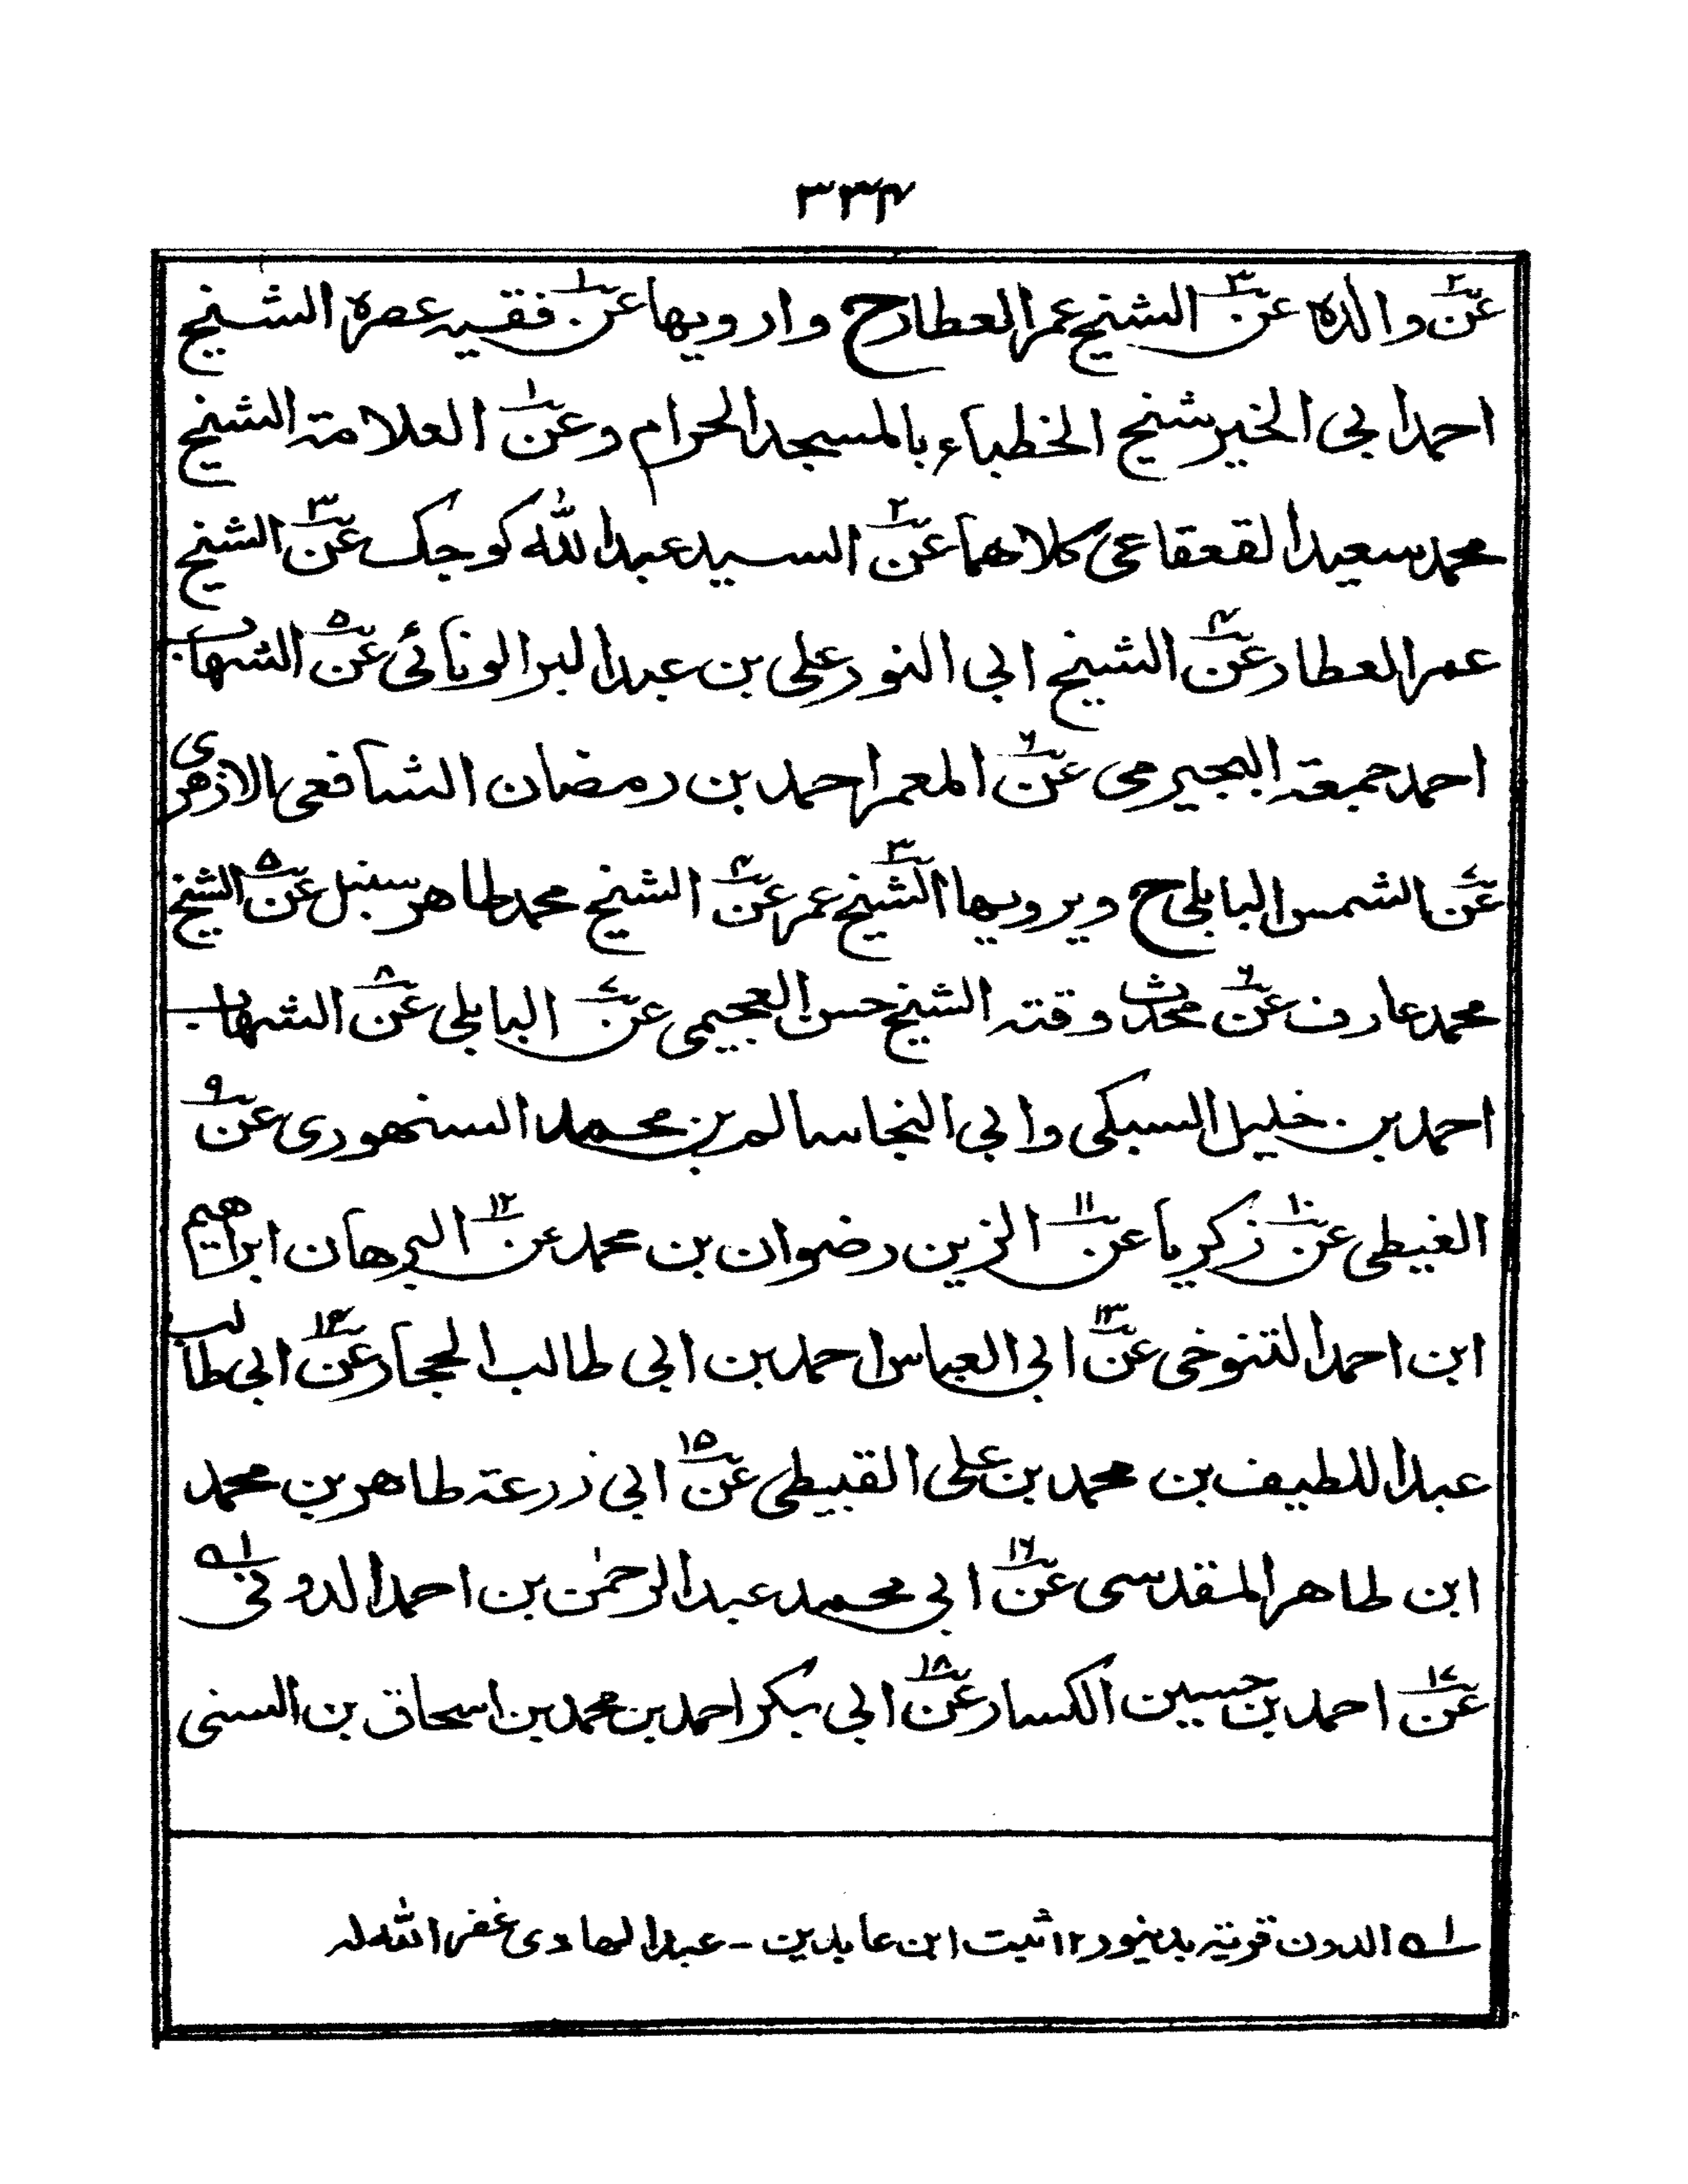 ٣٣٤
عن٢ والده عن٣ الشيخ عمر العطار ح وارويها عن١ فقيه عصره الشيخ
احمد ابی الخير شيخ الخطباء بالمسجد الحرام وعن١ العلامة الشيخ
محمد سعيد القعقاعی کلاهما عن٢ السيد عبد الله کوجک عن٣ الشيخ
عمر العطار عن۴ الشيخ ابی النور علی بن عبد البر الونائی عن۵ الشهاب
احمد جمعة البجيرمی عن۶ المعمر احمد بن رمضان الشافعی الازهری
عن٧ الشمس البابلی ح ويرويها الشيخ٣ عمر عن۴ الشيخ محمد طاهر سنبل عن۵ الشيخ
محمد عارف عن۶ محدث وقته الشيخ حسن العجيمی عن٧ البابلی عن٨ الشهاب
احمد بن خليل السبکی وابی النجا سالم بن محمد السنهوری عن٩
الغيطی عن١٠ زکريا عن١١ الزين رضوان بن محمد عن١٢ البرهان ابراهيم
ابن احمد التنوخی عن١٣ ابی العباس احمد بن ابی طالب الحجار عن١۴ ابی طالب
عبد اللطيف بن محمد بن علی القبيطی عن١۵ ابی زرعة طاهر بن محمد
ابن طاهر المقدسی عن١۶ ابی محمد عبد الرحمٰن بن احمد الدونی١ه
عن١٧ احمد بن حسين الکسار عن١٨ ابی بکر احمد بن محمد بن اسحاق بن السنی
١ه الدون قرية بدينور ١٢ ثبت ابن عابدين - عبد الهادی غفر الله له